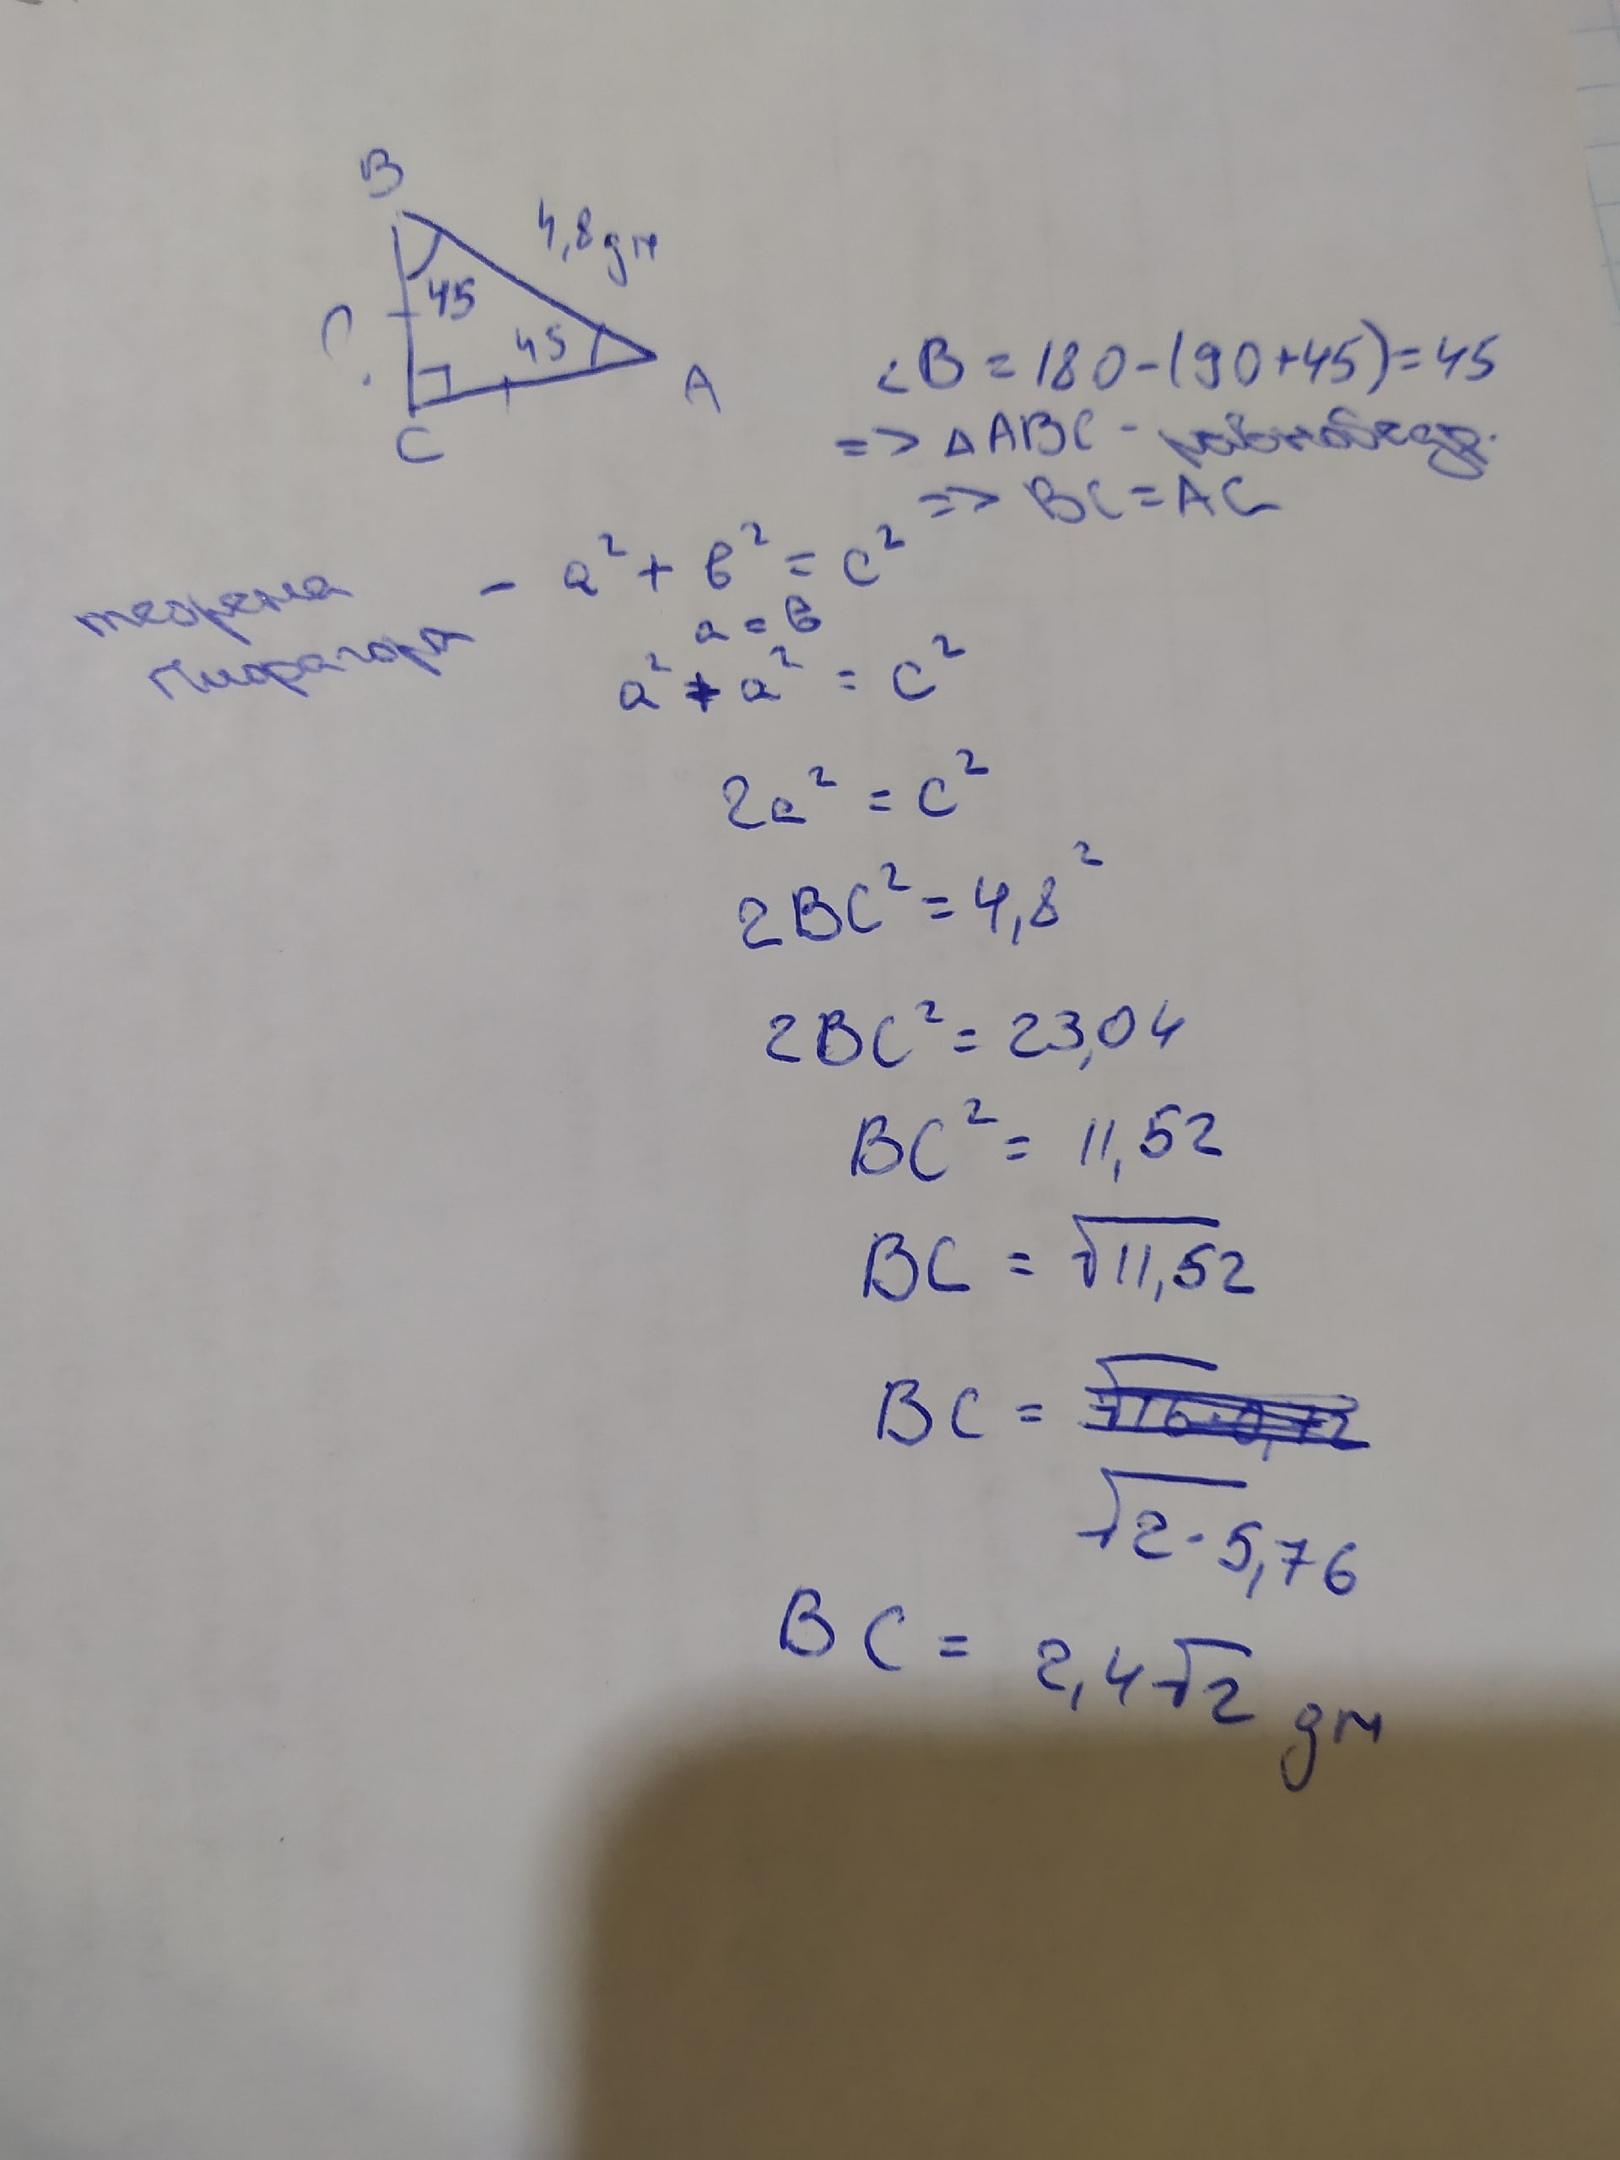 B
4,8 дм
45
45
?
A
C
∠B = 180-(90+45)=45
=> △ABC - равнобедр.
=> BC=AC
теорема Пифагора - a² + b² = c²
a = b
a² + a² = c²
2a² = c²
2BC² = 4,8²
2BC² = 23,04
BC² = 11,52
BC = √11,52
BC =
√2·5,76
BC = 2,4√2 дм